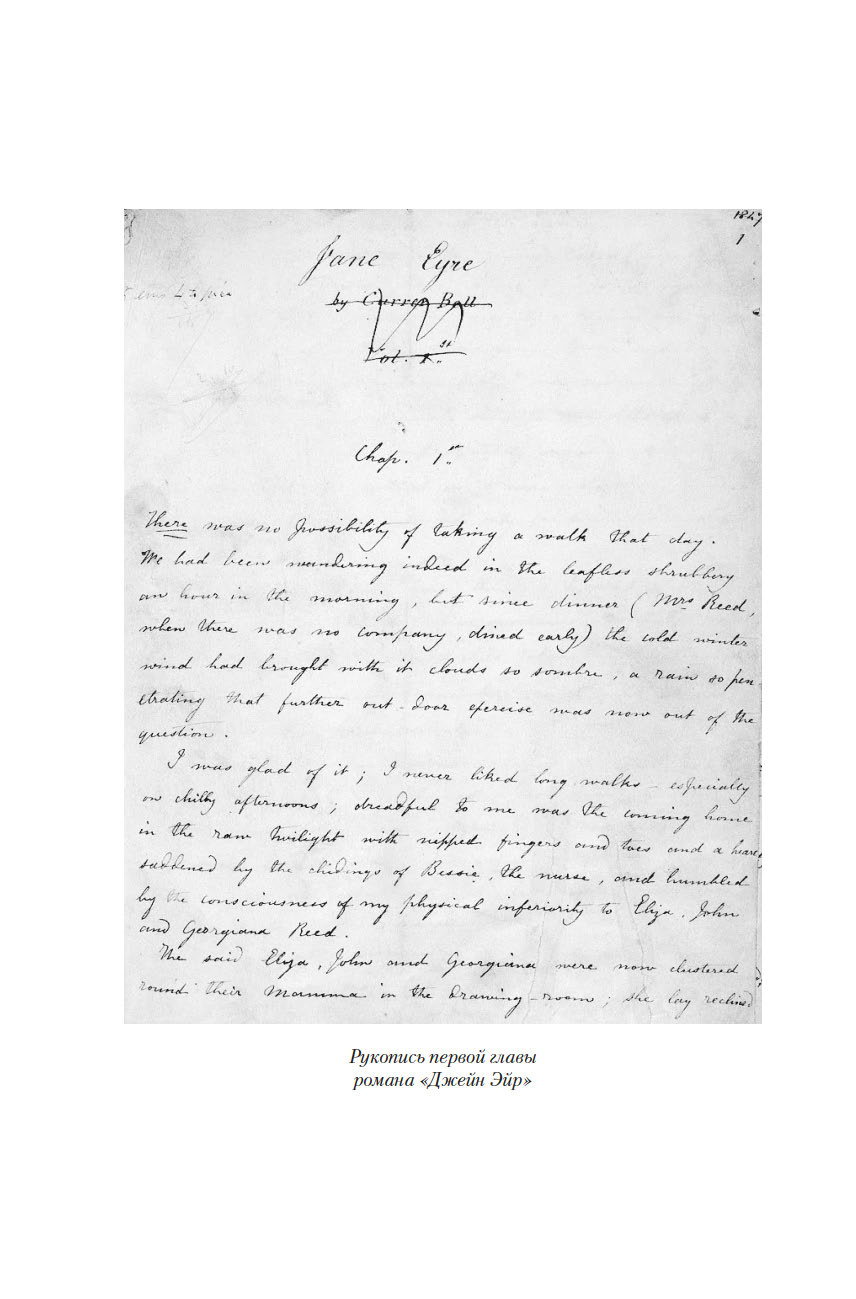 1847
1
Jane Eyre
by Currer Bell
Vol. 1st
Chap. 1st
There was no possibility of taking a walk that day.
We had been wandering indeed in the leafless shrubbery
an hour in the morning, but since dinner (Mrs Reed,
when there was no company, dined early) the cold winter
wind had brought with it clouds so sombre, a rain so pen-
etrating that further out-door exercise was now out of the
question.
I was glad of it; I never liked long walks - especially
on chilly afternoons; dreadful to me was the coming home
in the raw twilight with nipped fingers and toes and a heart
saddened by the chidings of Bessie, the nurse, and humbled
by the consciousness of my physical inferiority to Eliza, John
and Georgiana Reed.
The said Eliza, John and Georgiana were now clustered
round their Mamma in the drawing-room; she lay reclined
Рукопись первой главы
романа «Джейн Эйр»